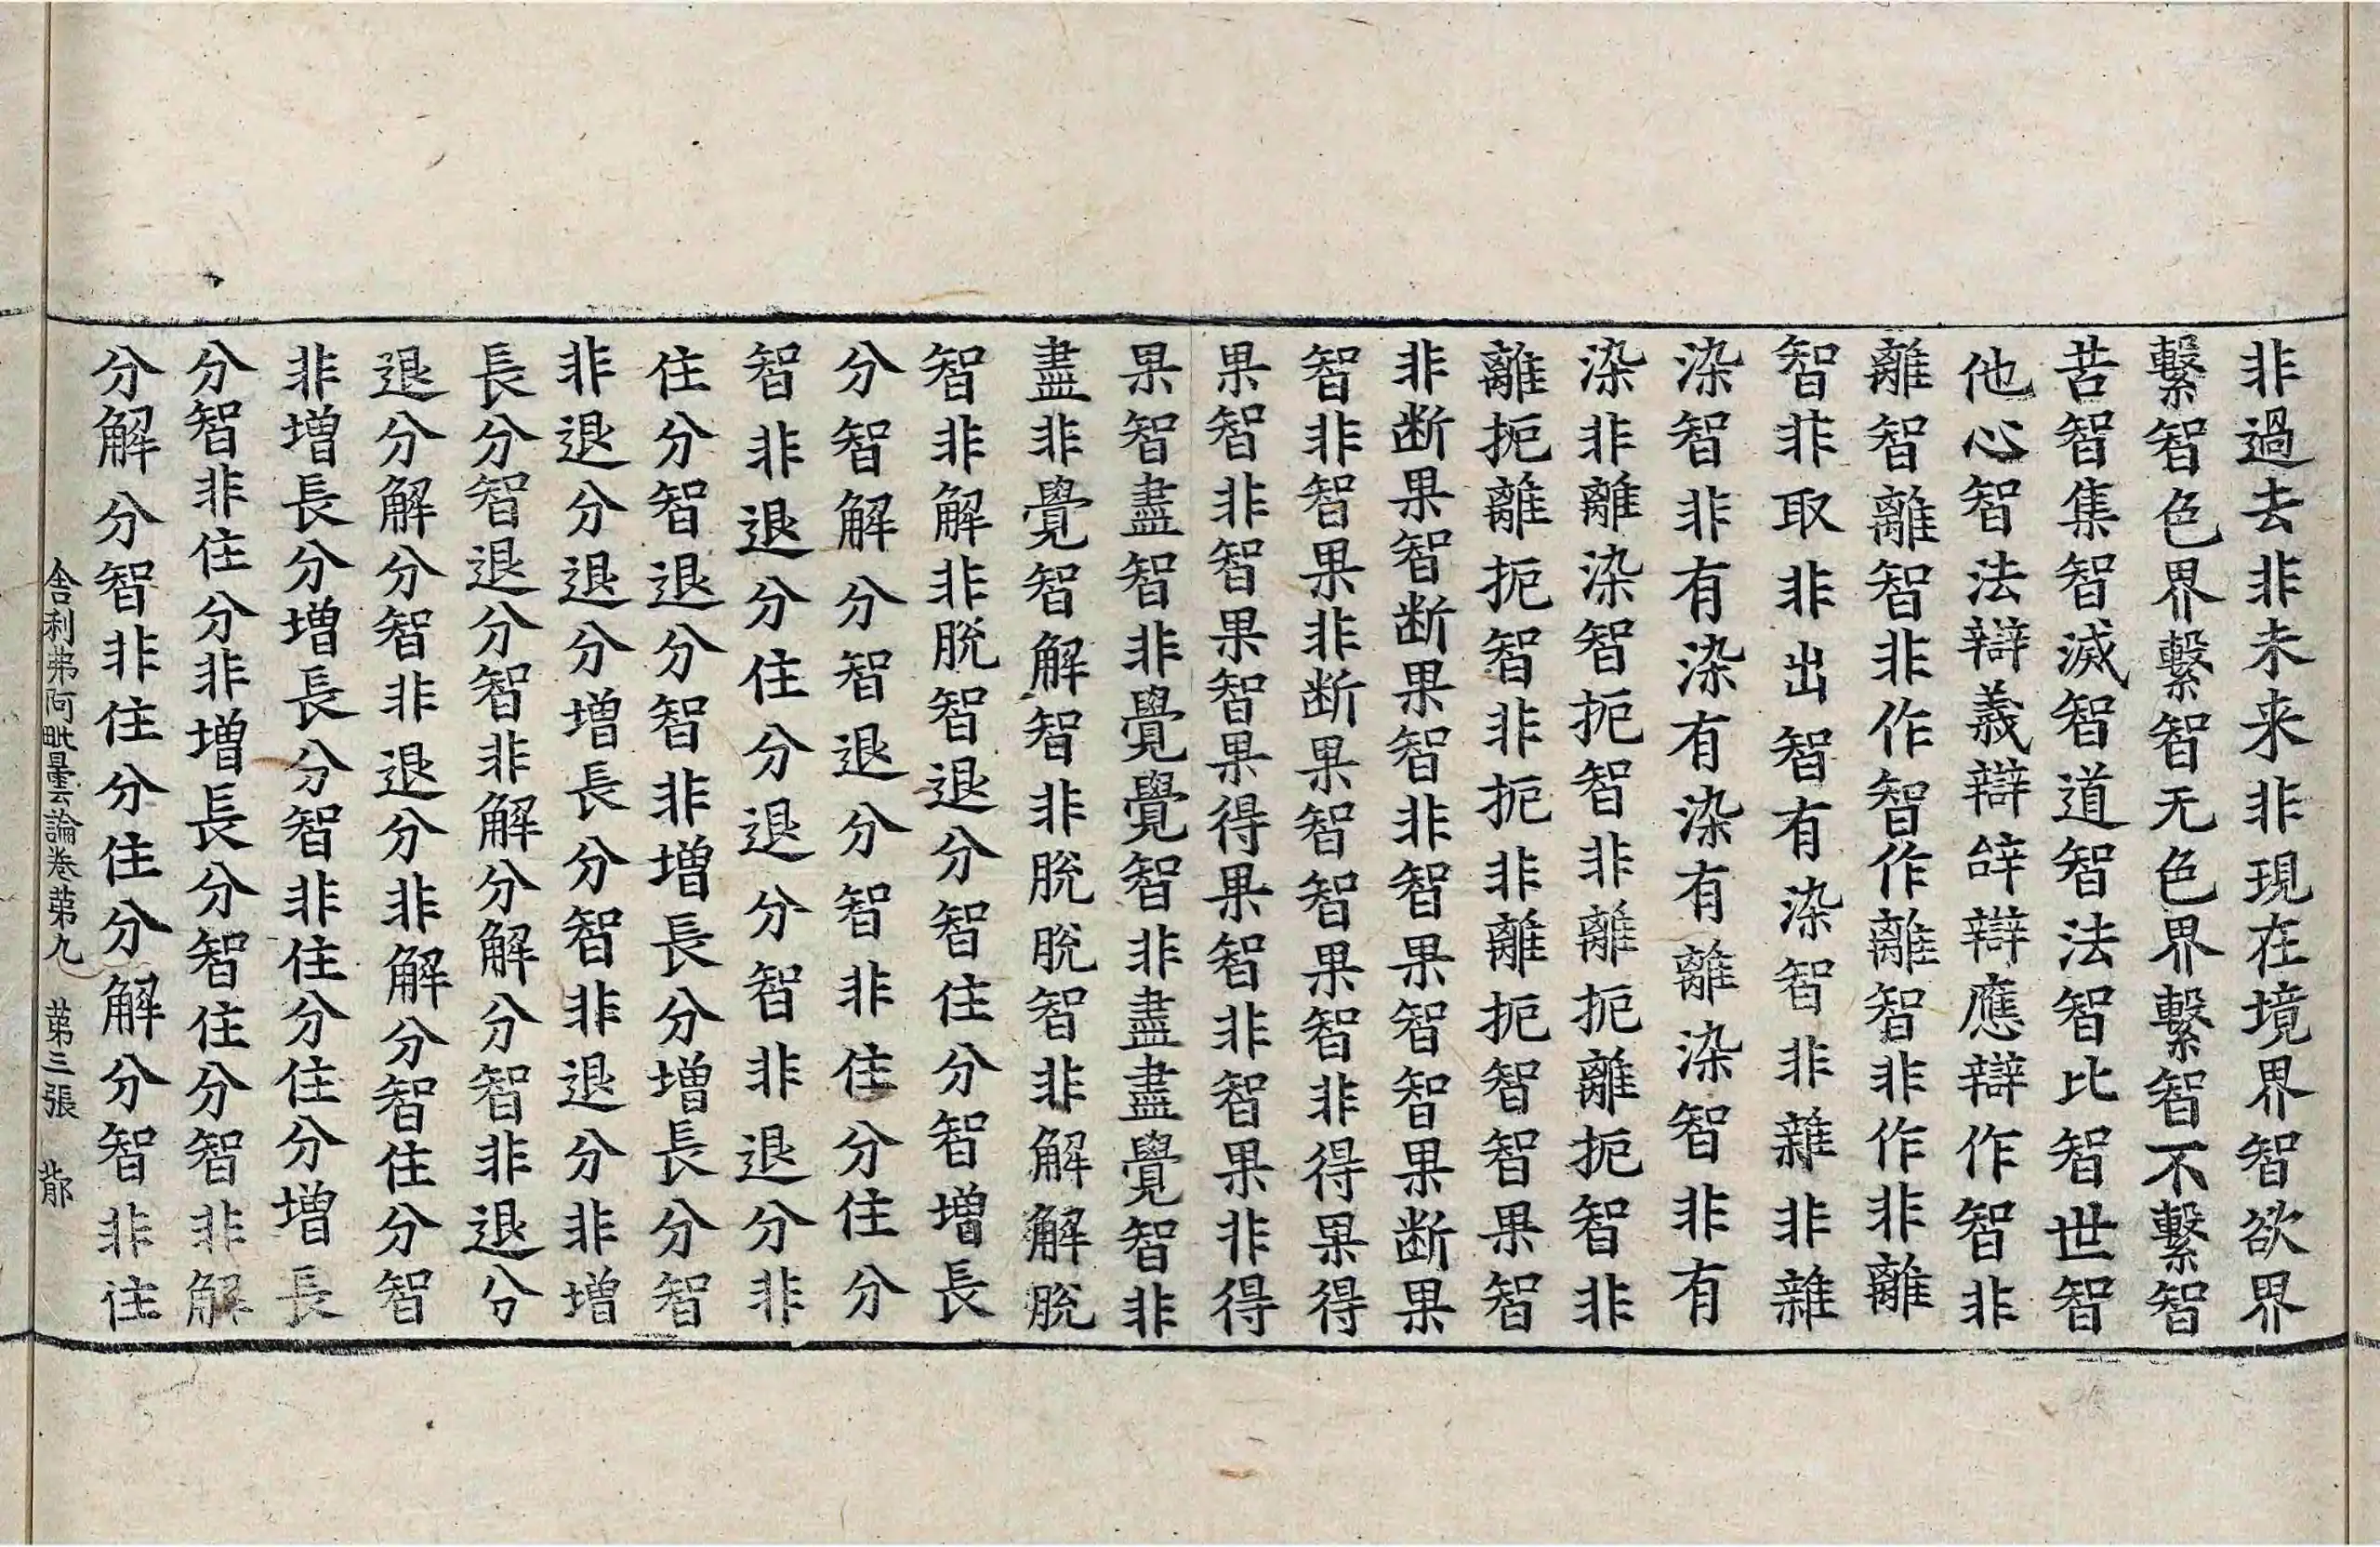 非過去非未来非現在境界智欲界
繫智色界繫智无色界繫智不繫智
苦智集智滅智道智法智比智世智
他心智法辯義辯辝辯應辯作智非
離智離智非作智作離智非作非離
智非取非出智有染智非雜非雜
染智非有染有染有離染智非有
染非離染智扼智非離扼離扼智非
離扼離扼智非扼非離扼智智果智
非断果智断果智非智果智智果断果
智非智果非断果智智果智非得果得
果智非智果智果得果智非智果非得
果智盡智非覺覺智非盡盡覺智非
盡非覺智解智非脫脫智非解解脫
智非解非脫智退分智住分智增長
分智解分智退分智非住分住分
智非退分住分退分智非退分非
住分智退分智非增長分增長分智
非退分退分增長分智非退分非增
長分智退分智非解分解分智非退分
退分解分智非退分非解分智住分智
非增長分增長分智非住分住分增長
分智非住分非增長分智住分智非解
分解分智非住分住分解分智非住
舍利弗阿毗曇論卷苐九 苐三張 𨚗